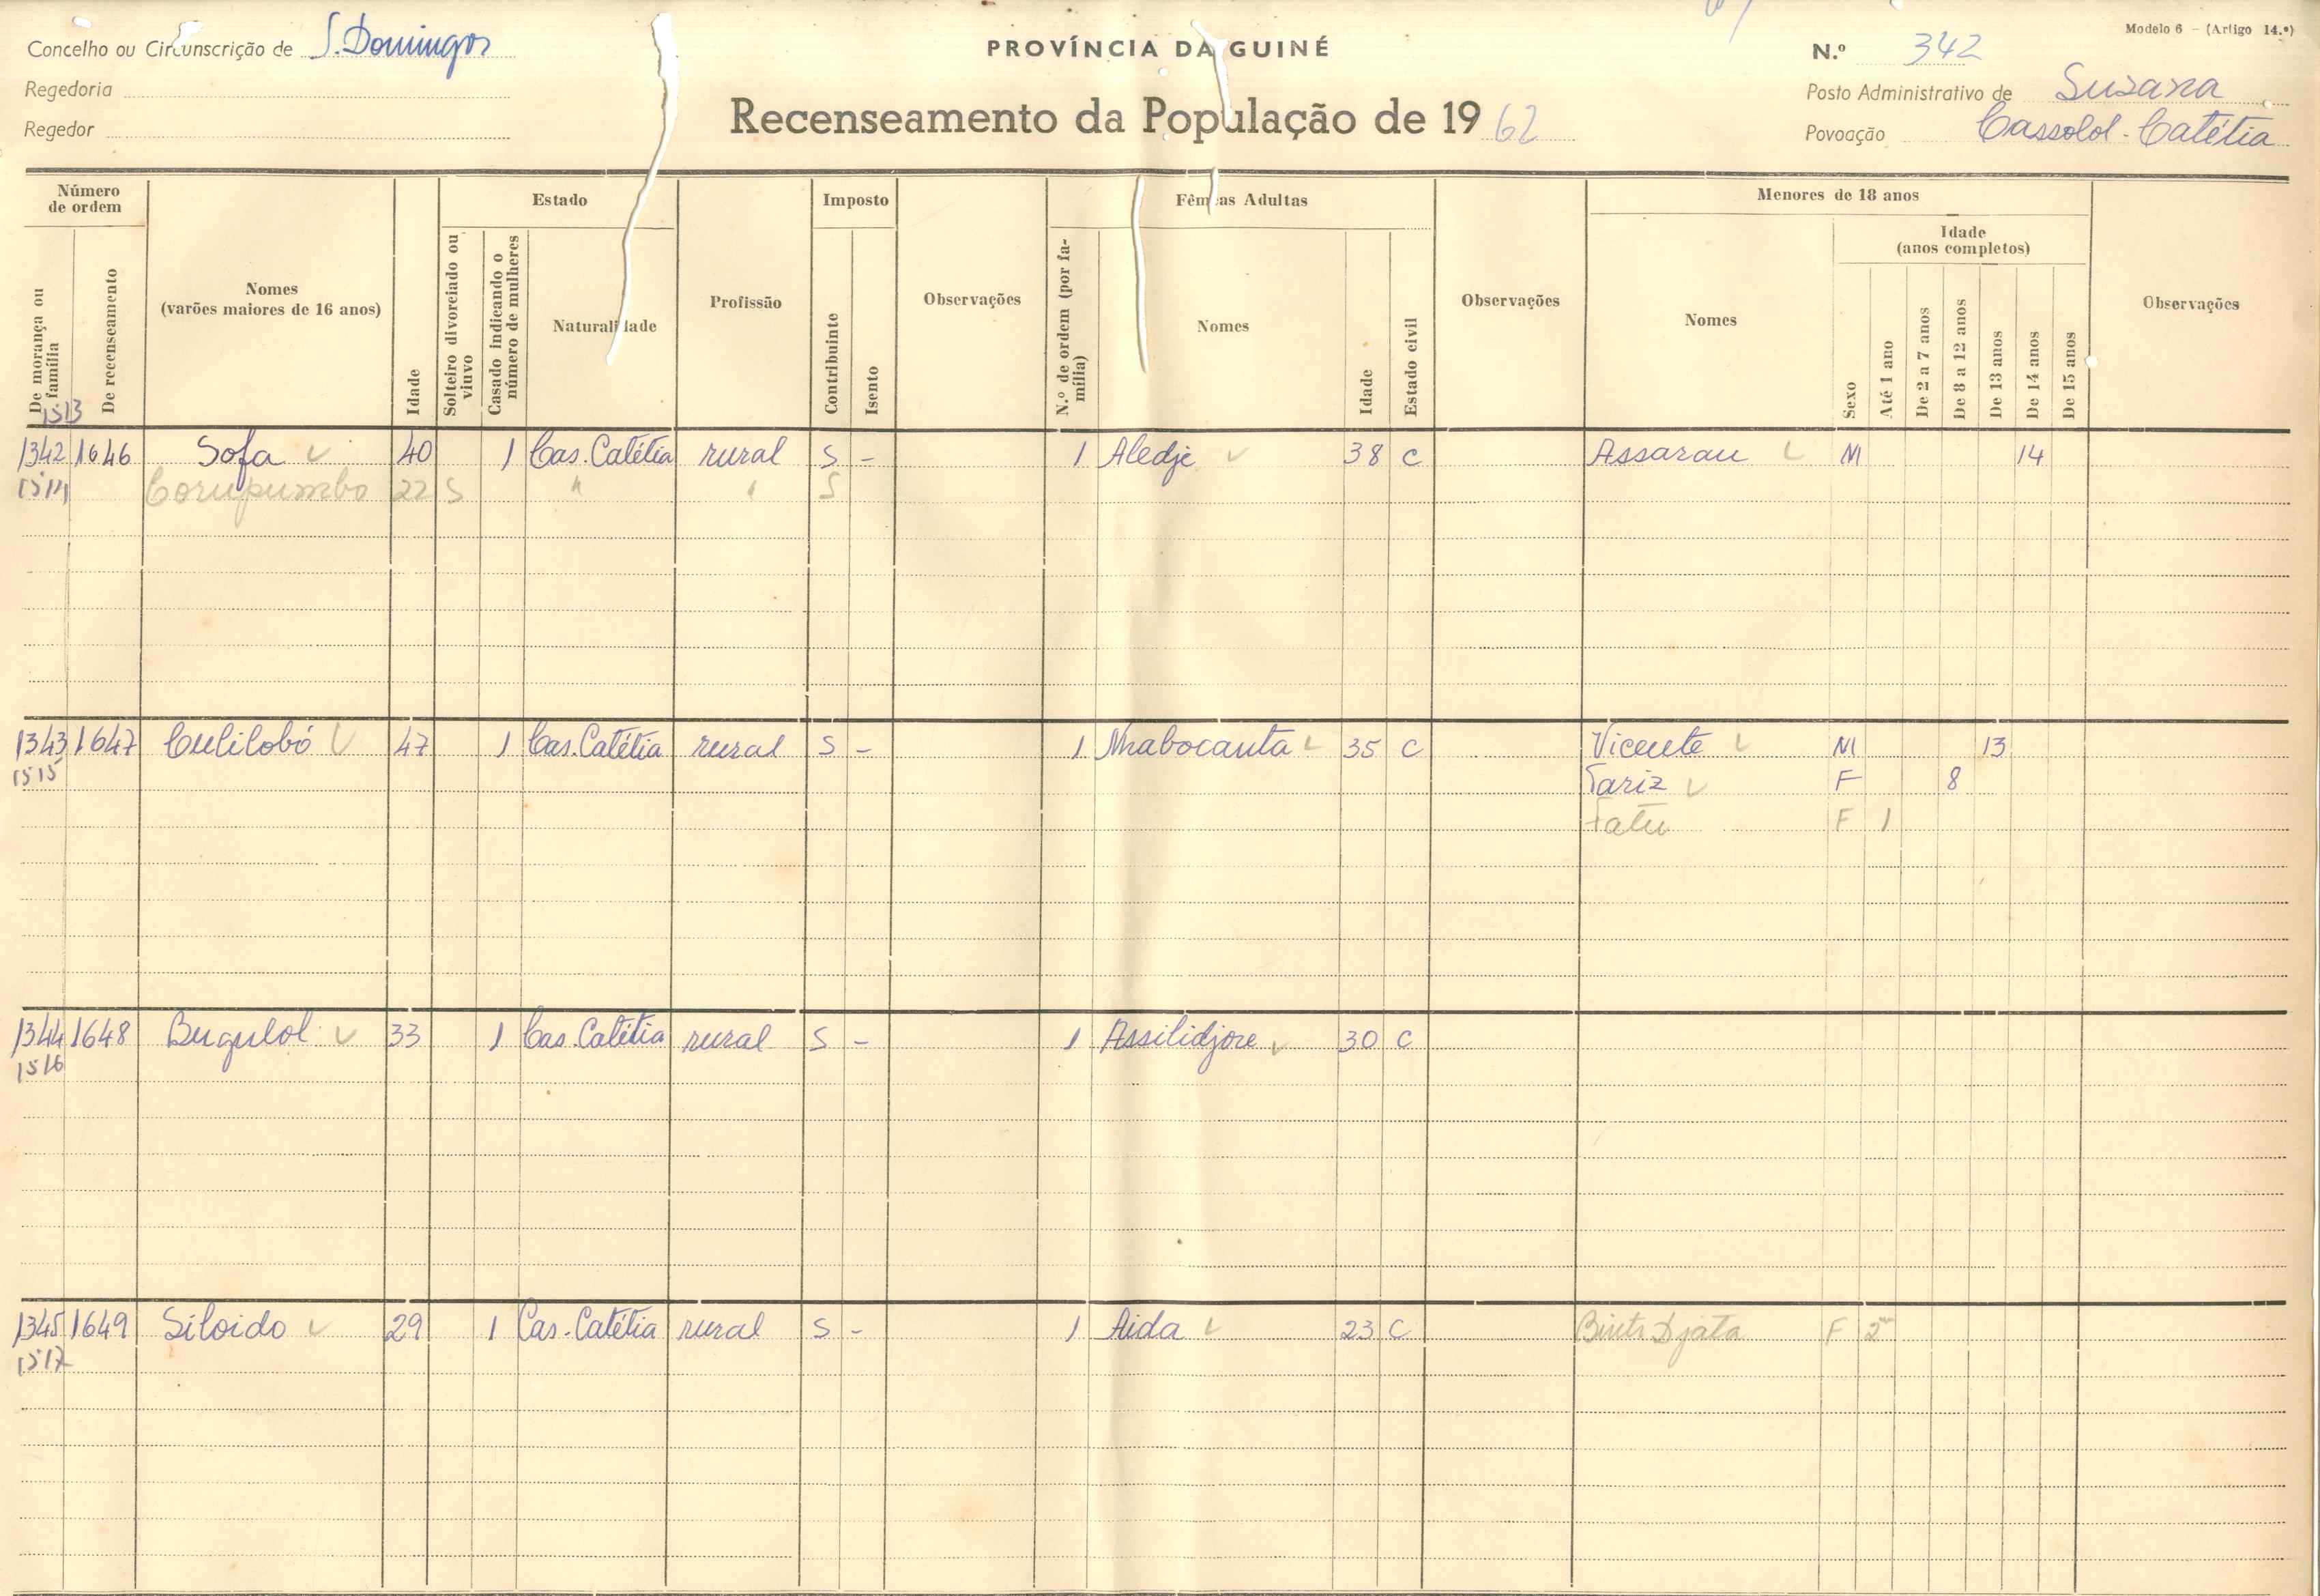 Modelo 6 - (Artigo 14.º)
Concelho ou Circunscrição de S. Domingos
PROVÍNCIA DA GUINÉ
N.º 342
Regedoria
Posto Administrativo de Suzana
Regedor
Recenseamento da População de 1962
Povoação Cassolol - Catétia
Número de ordem
Estado
Imposto
Fêmeas Adultas
Menores de 18 anos
Idade (anos completos)
De morança ou família
De recenseamento
Nomes (varões maiores de 16 anos)
Idade
Solteiro divorciado ou viuvo
Casado indicando o número de mulheres
Naturalidade
Profissão
Contribuinte
Isento
Observações
N.º de ordem (por família)
Nomes
Idade
Estado civil
Observações
Nomes
Sexo
Até 1 ano
De 2 a 7 anos
De 8 a 12 anos
De 13 anos
De 14 anos
De 15 anos
Observações
1513
1342 1646 Sofa 40 1 Cas. Catétia rural S - 1 Aledje 38 C Assarau M 14
1514 Corupumbo 22 S " " S
1343 1647 Culilobó 47 1 Cas. Catétia rural S - 1 Nhabocanta 35 C Vicente M 13
1515 Tariz F 8
Fatu F 1
1344 1648 Bugulol 33 1 Cas. Catétia rural S - 1 Assilidjore 30 C
1516
1345 1649 Siloido 29 1 Cas. Catétia rural S - 1 Aida 23 C Djata F 2
1517